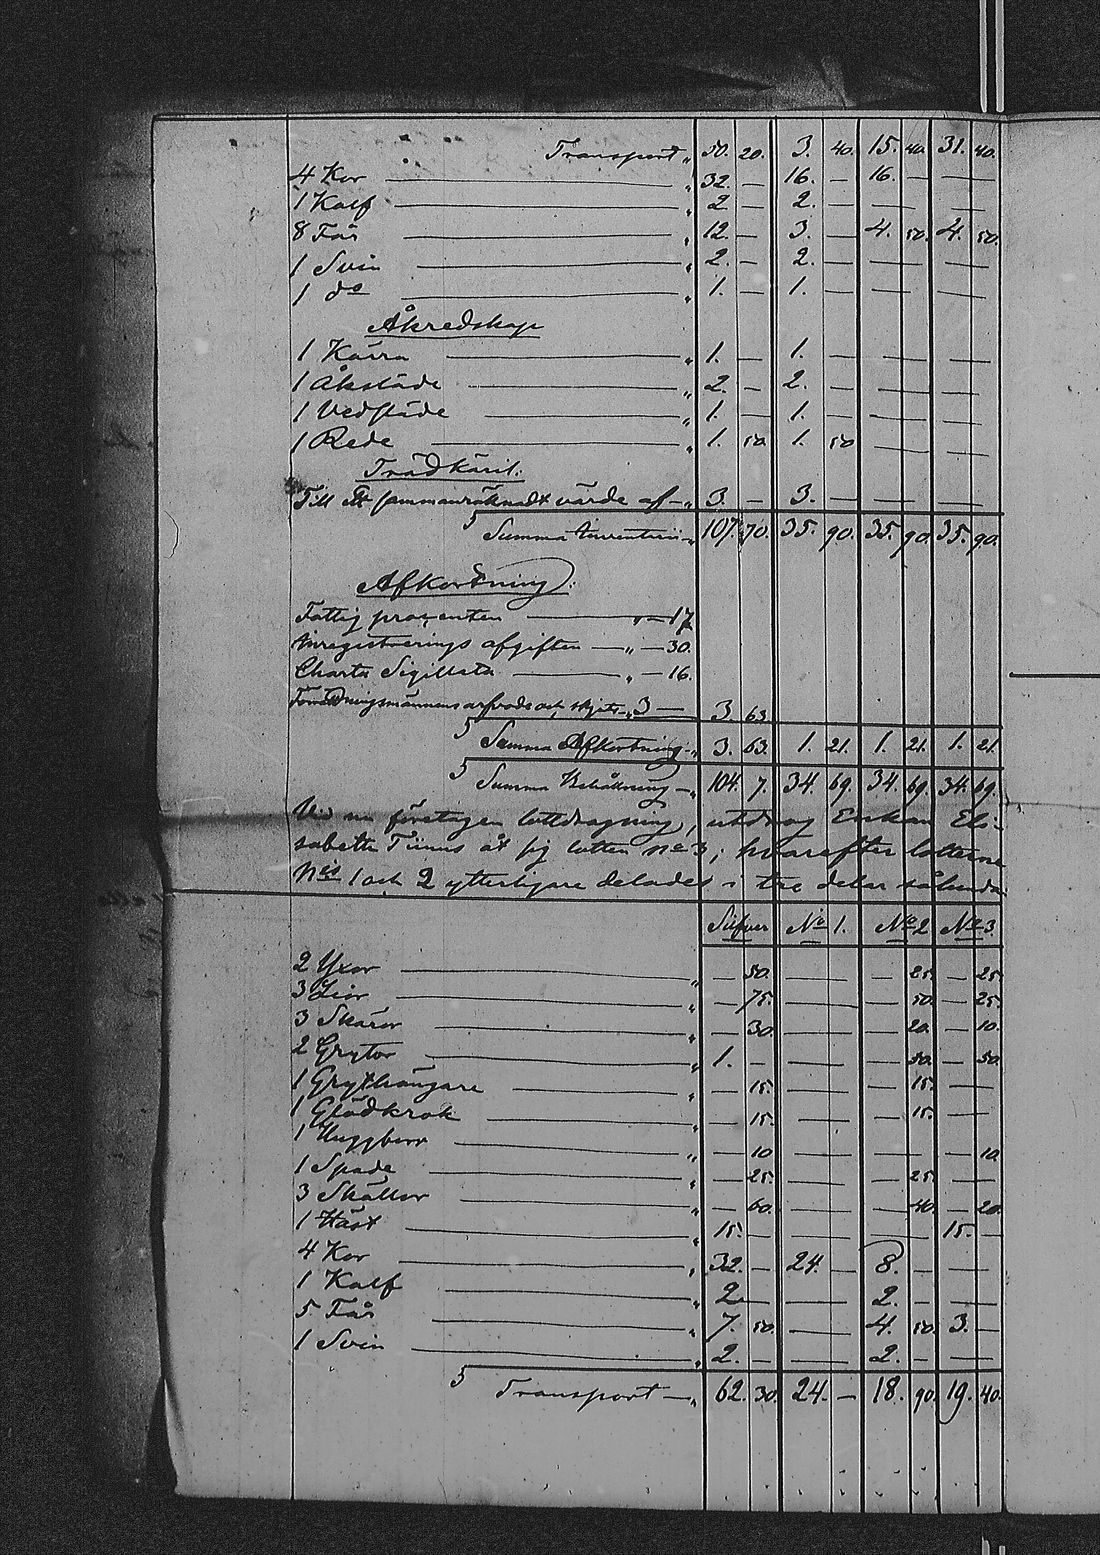 Transport „ 50. 20. 3. 40. 15. 40. 31. 40.
4 Kor — „ 32. — 16. — 16. — — —
1 Kalf — „ 2 — 2. — — — —
8 Får — „ 12. — 3. — 4. 50. 4. 50.
1 Svin — „ 2. — 2. — — — —
1 do — „ 1. — 1. — — — —
Åkredskap
1 Kärra — „ 1. — 1. — — — —
1 Åksläde — „ 2. — 2. — — — —
1 Vedsläde — „ 1. — 1. — — — —
1 Rede — „ 1. 50. 1. 50 — — —
Trädkäril.
Till Ett sammanräknadt värde af — „ 3. — 3. — — — —
Summa Inventarii — „ 107. 70. 35. 90. 35. 90. 35. 90.
Afkortning.
Fattig procenten — „ — 17
Inregistrerings afgiften — „ — 30.
Charta Sigillata — „ — 16.
Förrättningsmännens arfvode och skjuts „ 3 — 3. 63
Summa Afkortning „ 3. 63. 1. 21. 1. 21. 1. 21
Summa Behållning — „ 104. 7. 34. 69. 34. 69. 34. 69.
Vid nu företagen lottdragning, utdrog Enkan Eli-
sabetta Tiinus åt sig lotten No 3; hvarefter lotterne
Nris 1 och 2 ytterligare delades i tre delar sålunda
Silfver No 1. No 2 No 3.
2 Yxor — „ — 50. — — — 25. — 25.
3 Liar — „ — 75. — — — 50. — 25.
3 Skäror — „ — 30. — — — 20. — 10.
2 Grytor — „ 1. — — — — 50. — 50.
1 Grythängare — „ — 15. — — — 15. —
1 Glödkrok — „ — 15. — — — 15. —
1 Huggborr — „ — 10 — — — — — 10
1 Spade — „ — 25. — — — 25. —
3 Skällor — „ — 60. — — — 40. — 20.
1 Häst — „ 15. — — — — — 15. —
4 Kor — „ 32. — 24. — 8. — —
1 Kalf — „ 2. — — 2. — —
5 Får — „ 7. 50. — 4. 50. 3. —
1 Svin — „ 2. — — 2. — —
Transport — „ 62. 30. 24. — 18. 90. 19. 40.